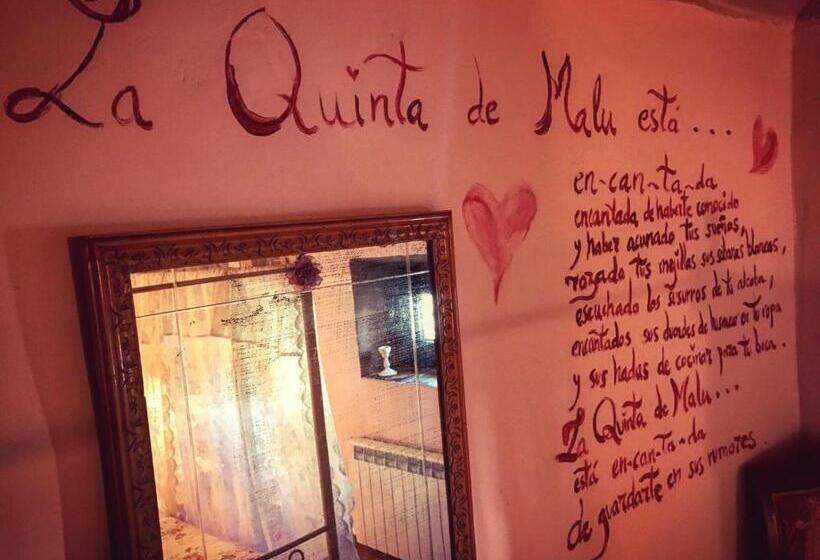 La Quinta de Malu está...
en-can-ta-da
encantada de haberte conocido
y haber acunado tus sueños,
rozado tus mejillas sus sabanas blancas,
escuchado los susurros de tu alcoba,
encantados sus duendes de husmear en tu ropa
y sus hadas de cocinar para tu boca.
La Quinta de Malu...
está en-can-ta-da
de guardarte en sus rumores.